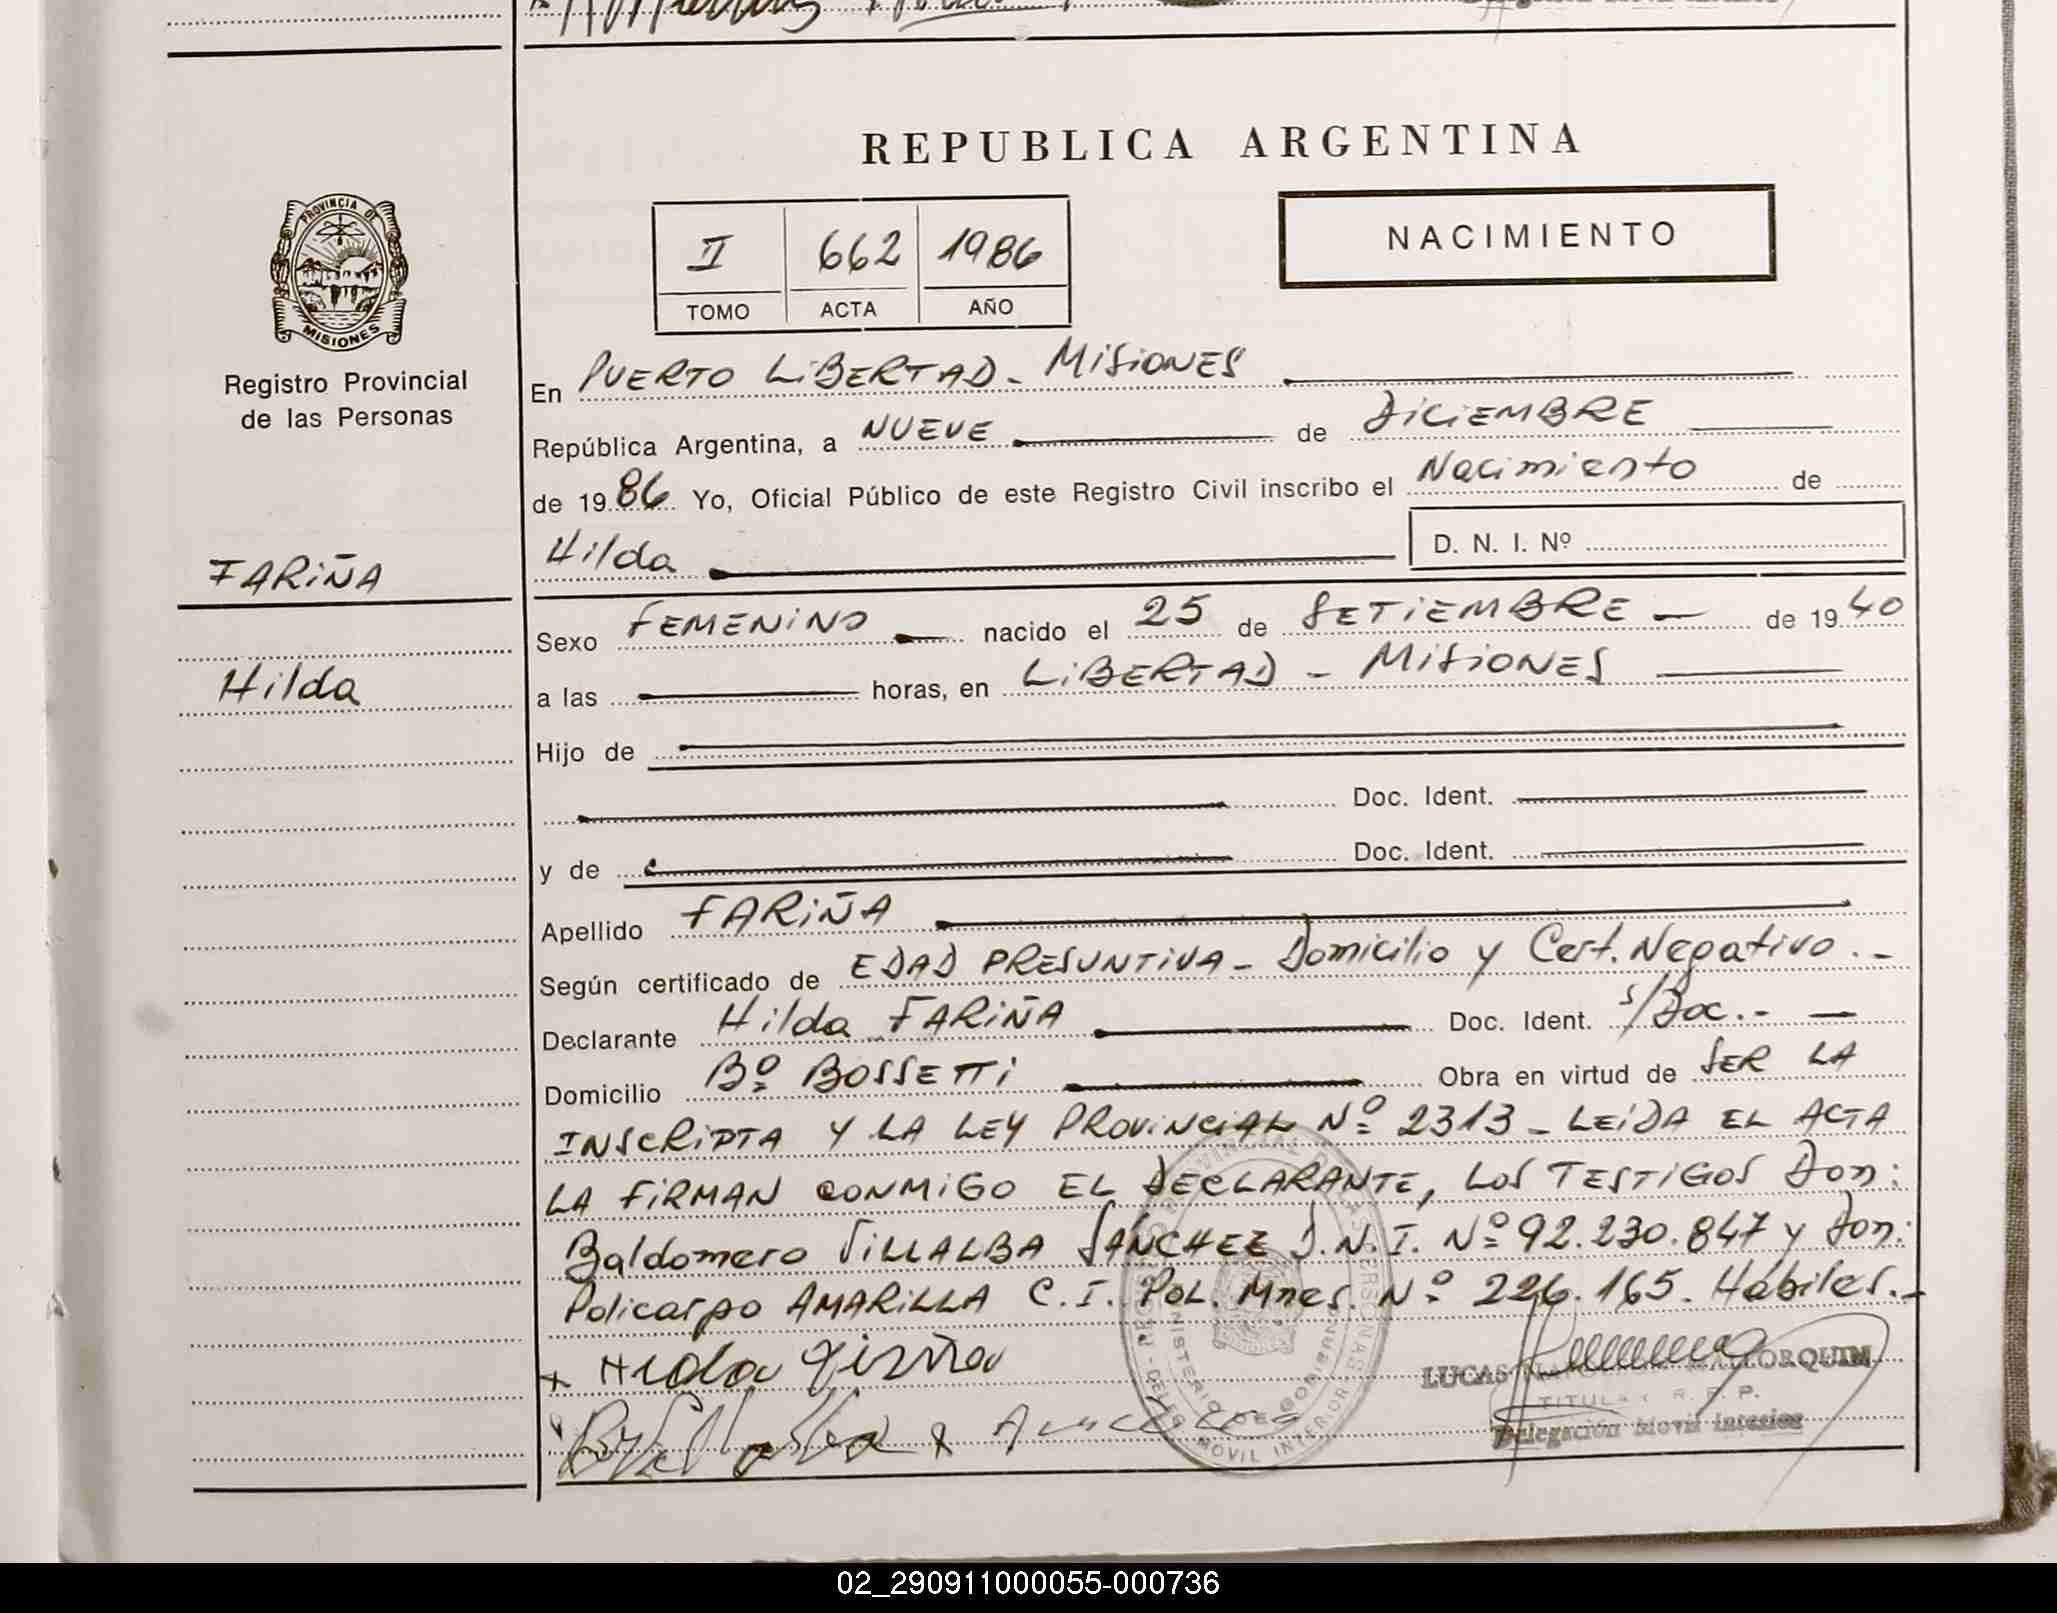 REPUBLICA ARGENTINA
PROVINCIA DE
MISIONES
Registro Provincial
de las Personas
II 662 1986
TOMO ACTA AÑO
NACIMIENTO
En PUERTO LIBERTAD - MISIONES
República Argentina, a NUEVE de DICIEMBRE
de 1986 Yo, Oficial Público de este Registro Civil inscribo el Nacimiento de
Hilda D. N. I. Nº
FARIÑA
Hilda
Sexo FEMENINO nacido el 25 de SETIEMBRE de 1940
a las horas, en LIBERTAD - MISIONES
Hijo de
Doc. Ident.
y de Doc. Ident.
Apellido FARIÑA
Según certificado de EDAD PRESUNTIVA - Domicilio y Cert. Negativo.-
Declarante Hilda FARIÑA Doc. Ident. s/Doc.-
Domicilio Bº BOSSETTI Obra en virtud de SER LA
INSCRIPTA Y LA LEY PROVINCIAL Nº 2313 - LEIDA EL ACTA
LA FIRMAN CONMIGO EL DECLARANTE, LOS TESTIGOS Don:
Baldomero VILLALBA SÁNCHEZ D.N.I. Nº 92.230.847 y Don:
Policarpo AMARILLA C.I. POL. Mnes. Nº 226.165. Habiles.-
LUCAS MALLORQUIN
TITULAR R. P. P.
Delegación Movil Interior
MINISTERIO DE GOBIERNO
MOVIL INTERIOR
02_290911000055-000736